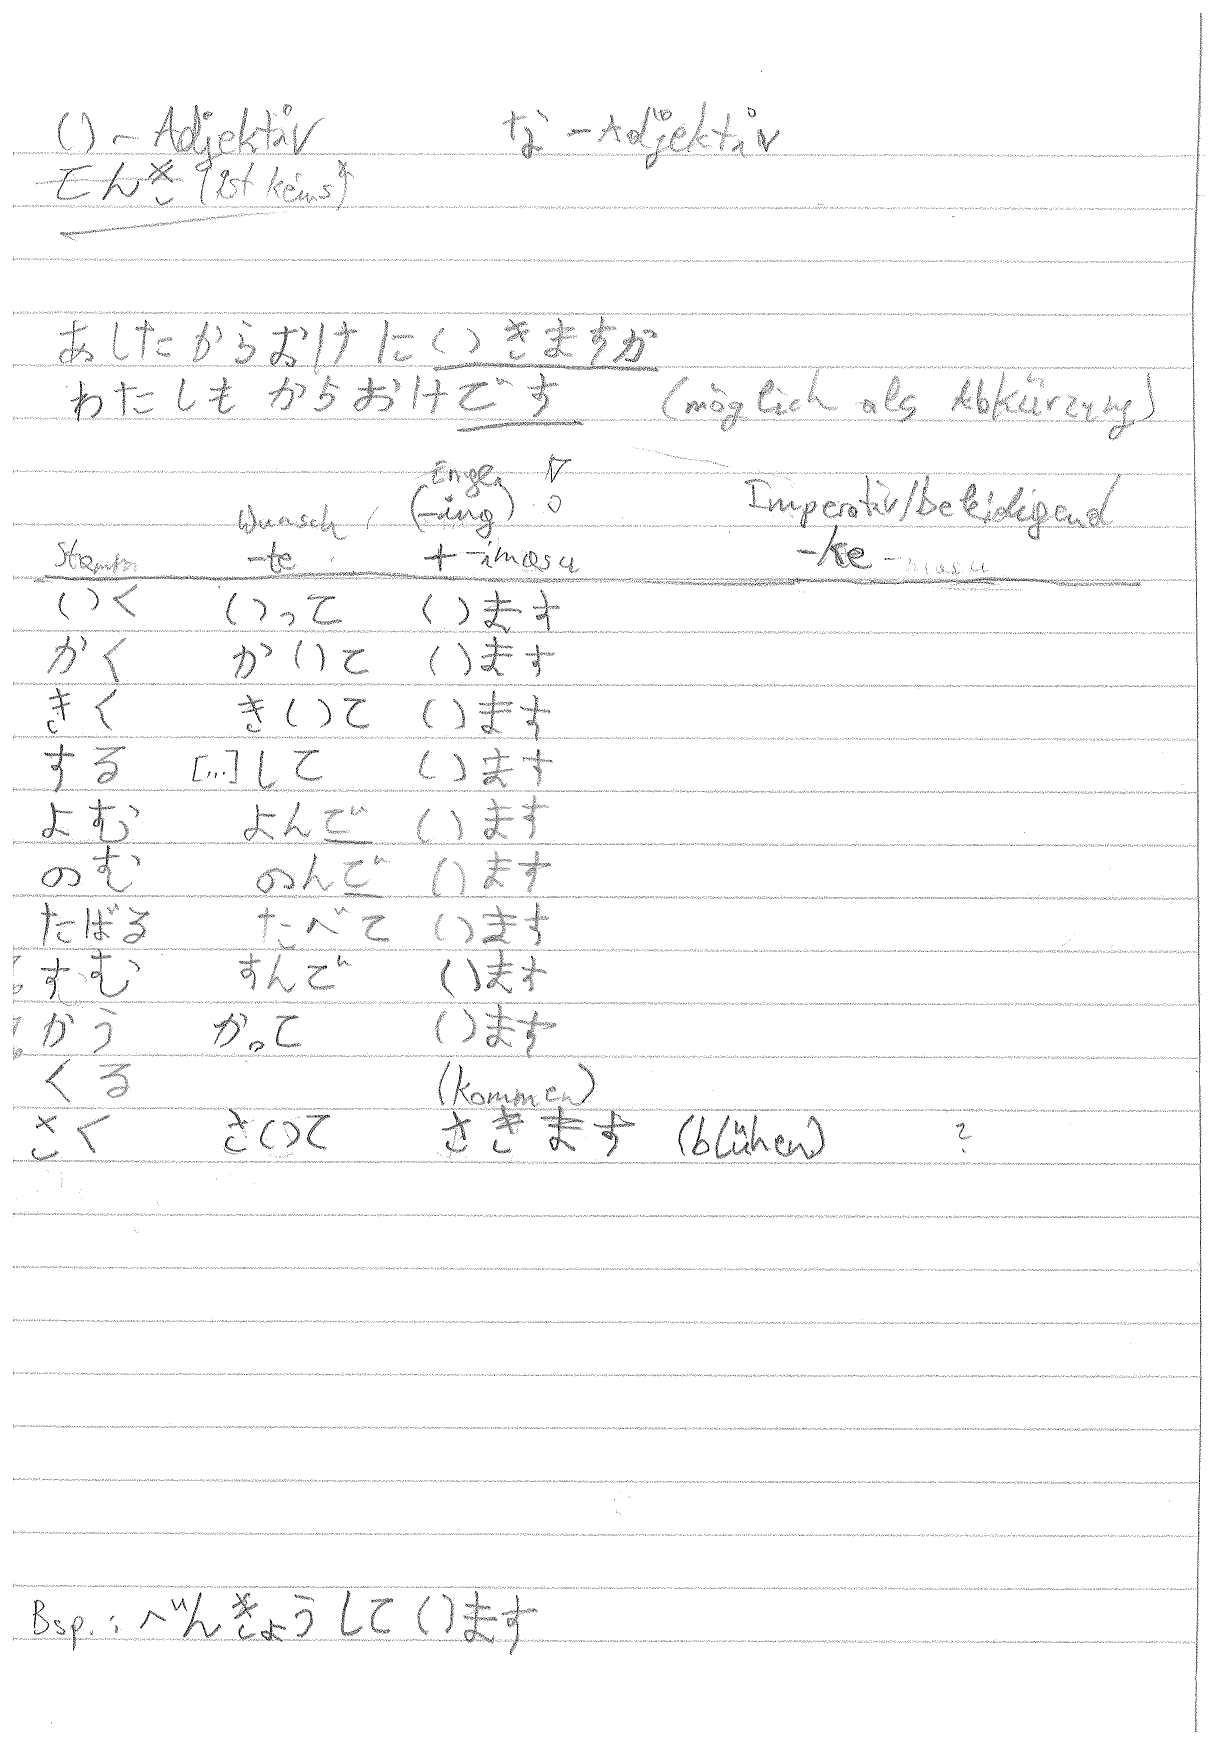 い-Adjektiv な-Adjektiv
てんき (ist keins)
あしたからおけにいきますか
わたしもからおけです (möglich als Abkürzung)
Wunsch (-ing) Imperativ/beleidigend
Stamm -te + -imasu -ke -masu
いく いって います
かく かいて います
きく きいて います
する [...]して います
よむ よんで います
のむ のんで います
たばる たべて います
すむ すんで います
かう かって います
くる (kommen)
さく さいて さきます (blühen) ?
Bsp.: べんきょうしています